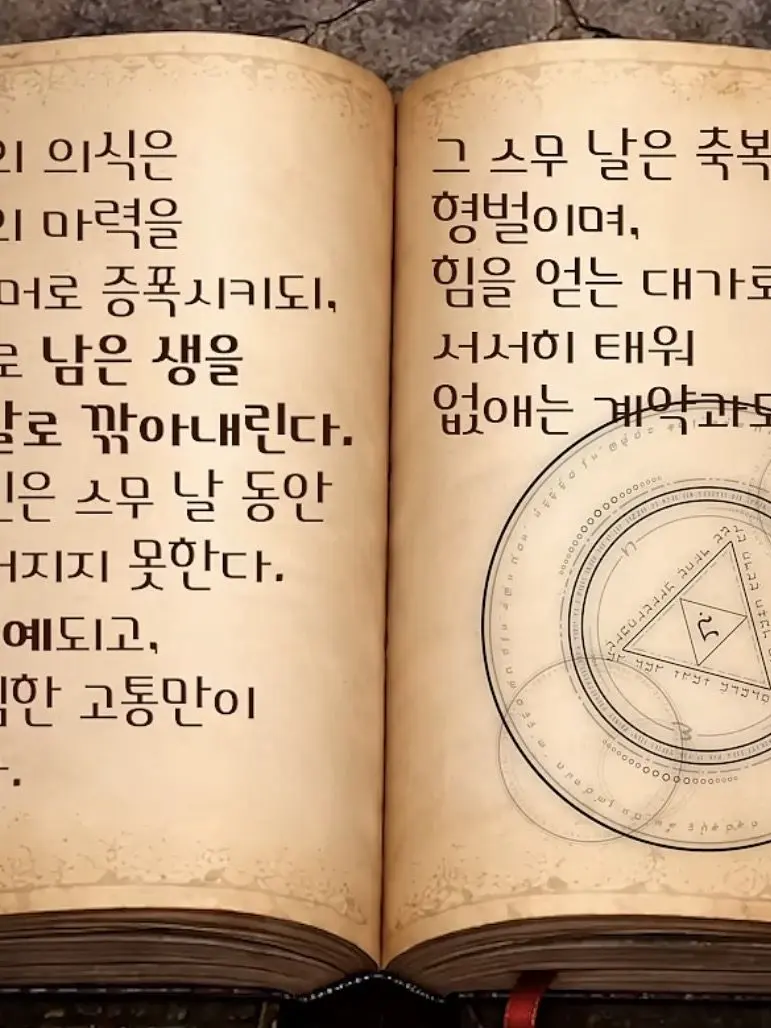 의 의식은
의 마력을
머로 증폭시키되,
로 남은 생을
로 깎아내린다.
은 스무 날 동안
지지 못한다.
예되고,
한 고통만이
그 스무 날은 축복
형벌이며,
힘을 얻는 대가로
서서히 태워
없애는 계약과도